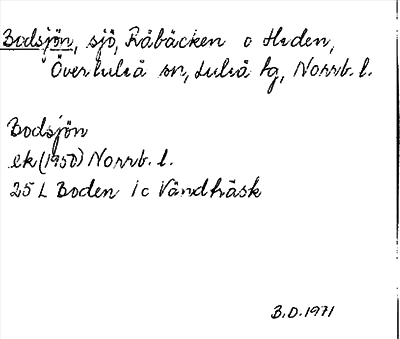 Bodsjön, sjö, Råbäcken o Heden,
Överluleå sn, Luleå tg, Norrb. l.
Bodsjön
ek (1950) Norrb. l.
25 L Boden 1c Vändträsk
B.D. 1971